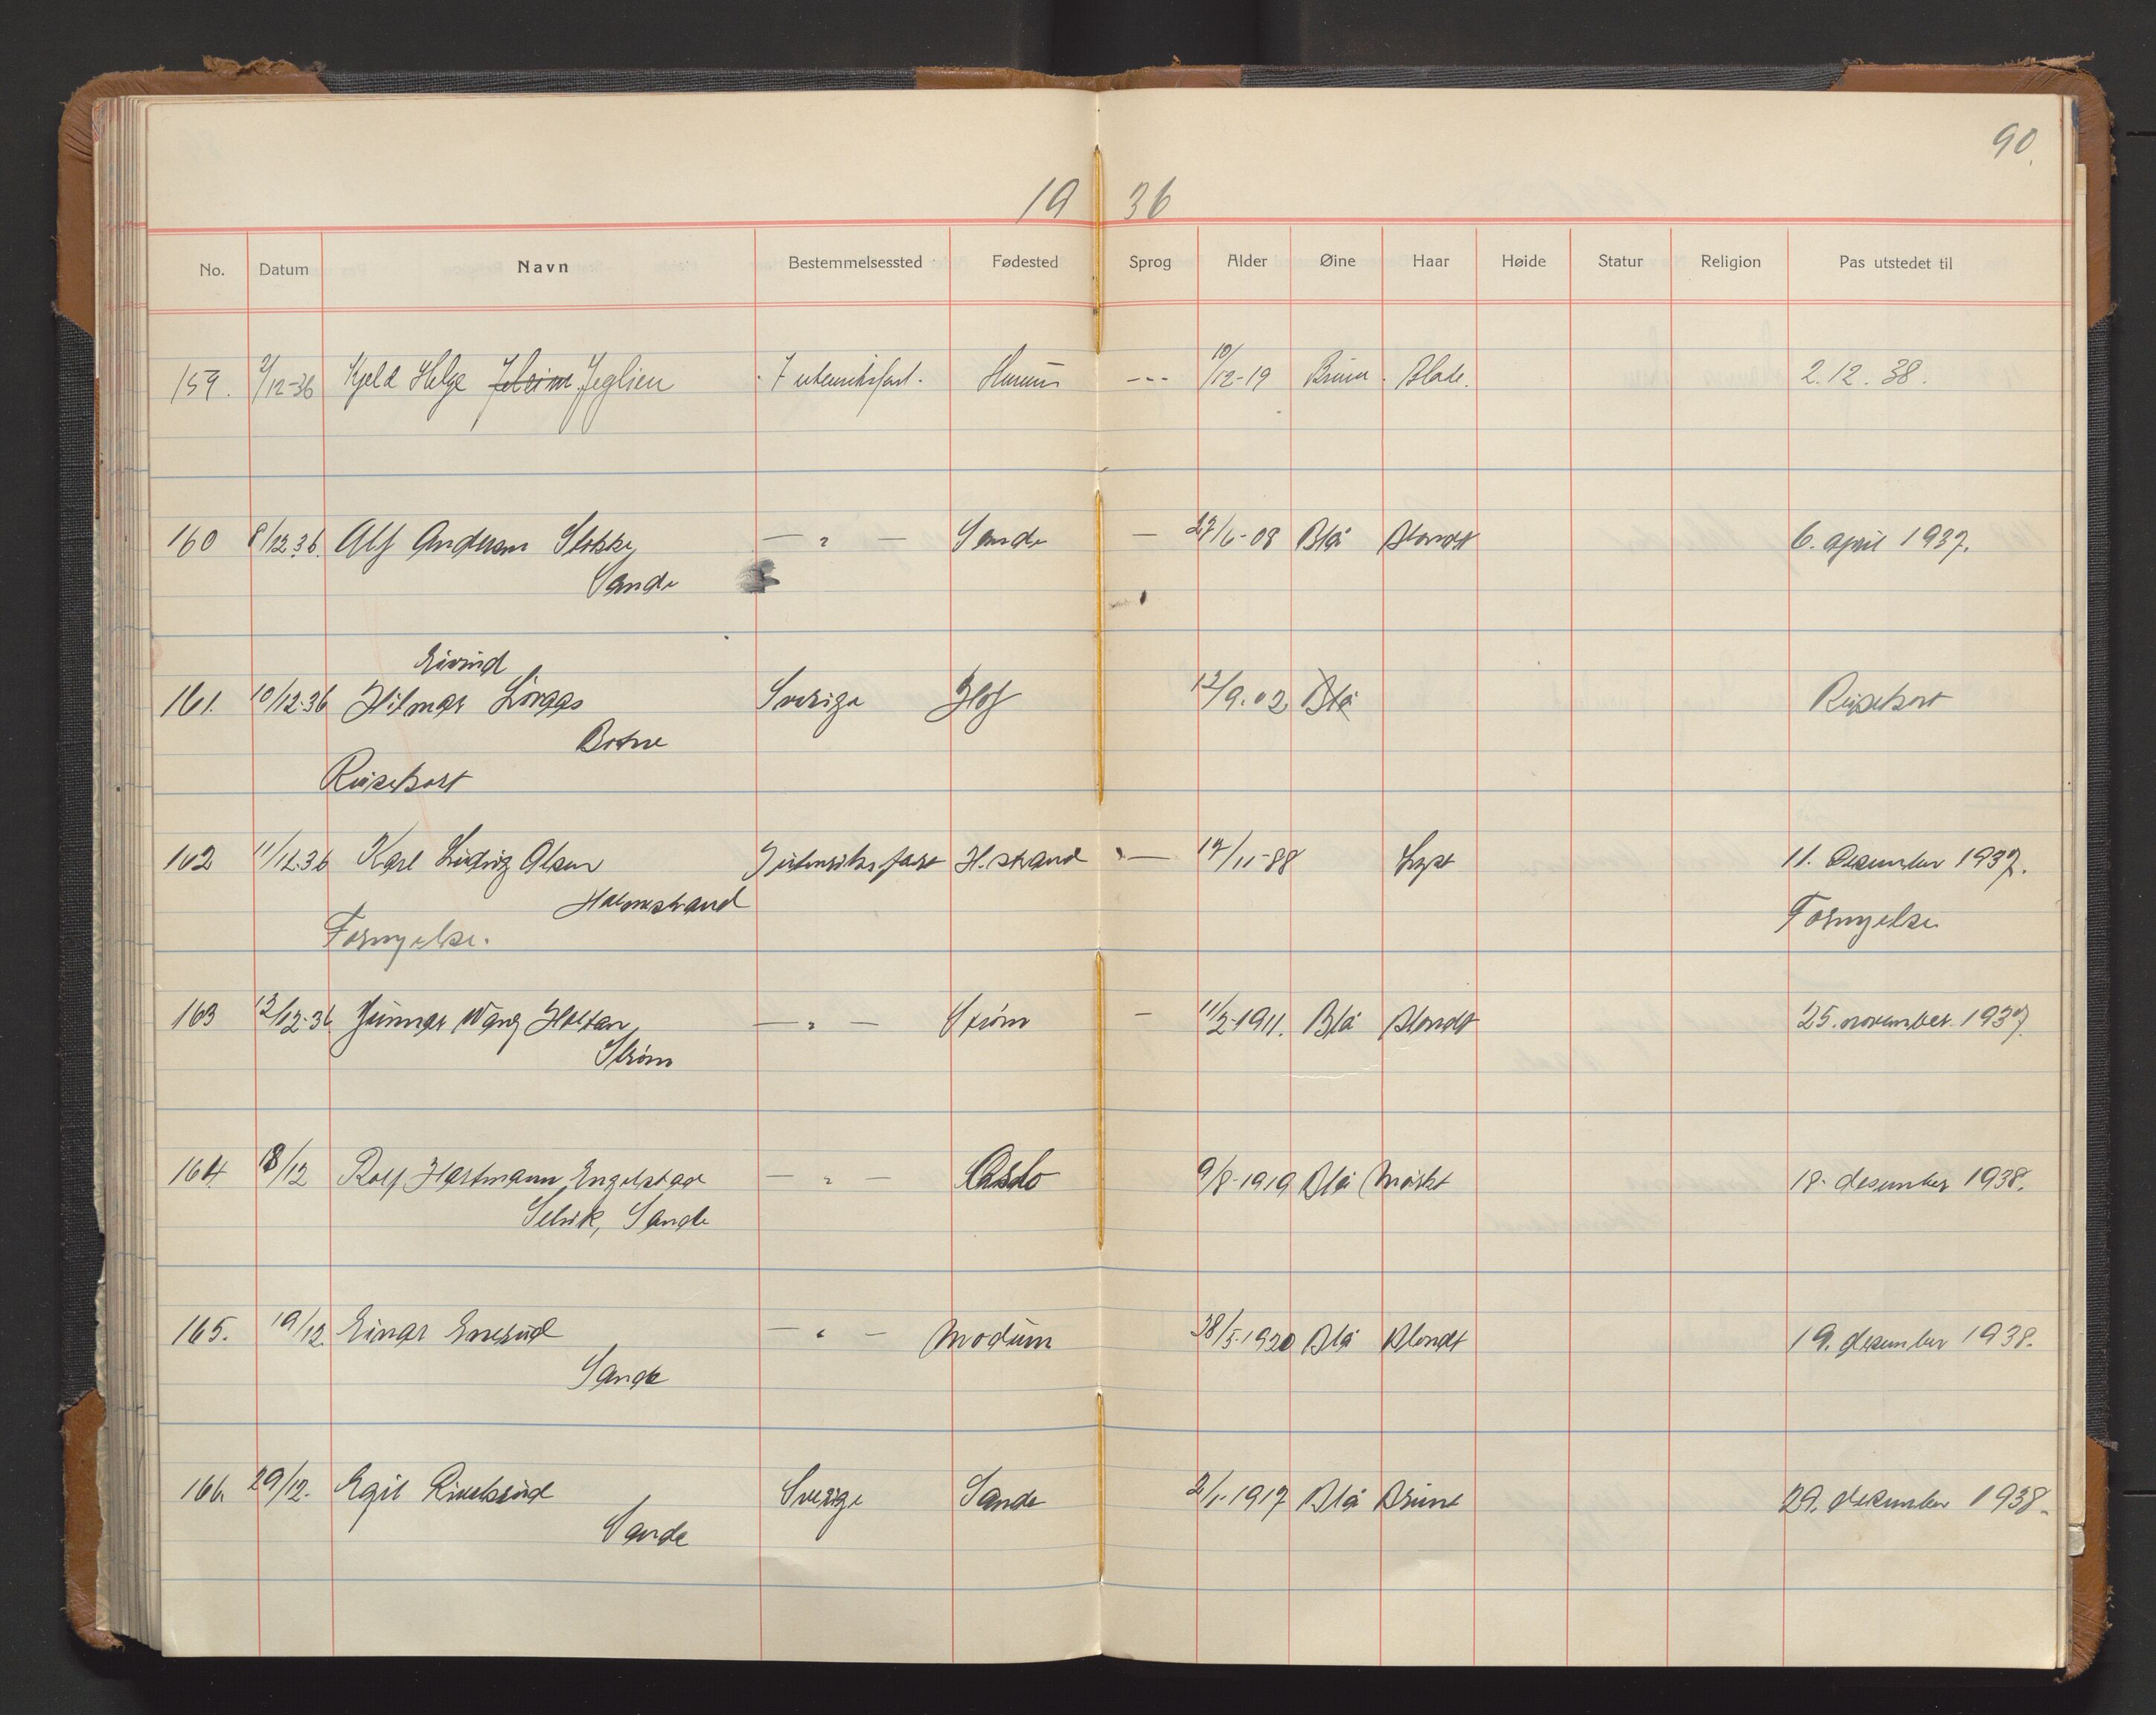 90
19 36
No. Datum Navn Bestemmelsessted Fødested Sprog Alder Øine Haar Høide Statur Religion Pas utstedet til
159. 2/12-36 Kjeld Helge Jeglien I utenriksfart. Hurum --- 10/12-19 Brun 2.12.38.
160 8/12.36. Alf Andersen Stokke, — " — Sande — 27/6-08 Blå Blondt 6. april 1937.
Sande
Eivind
161. 10/12-36 Hilmar Sverige Hof 12/9.02 Blå Reisekort
Botne
Reisekort
162 11/12.36 Karl Ludvig Olsen I utenriksfart H.strand — 17/11-88 Lyst 11. desember 1937.
Holmestrand
Fornyelse. Fornyelse
163 12/12-36 Gunnar Wang Holtan, — " — Strøm — 11/2-1911. Blå Blondt 25. november 1937
Strøm
164 18/12 Rolf Hartmann Engelstad — " — Oslo 9/8-1919 Blå Mørkt 18. desember 1938.
Selvik, Sande
165. 19/12 Einar Enerud — " — Modum 28/5-1920 Blå Blondt 19. desember 1938.
Sande
166. 29/12. Egil Sverige Sande 2/1-1917 Blå Brunt 29. desember 1938.
Sande